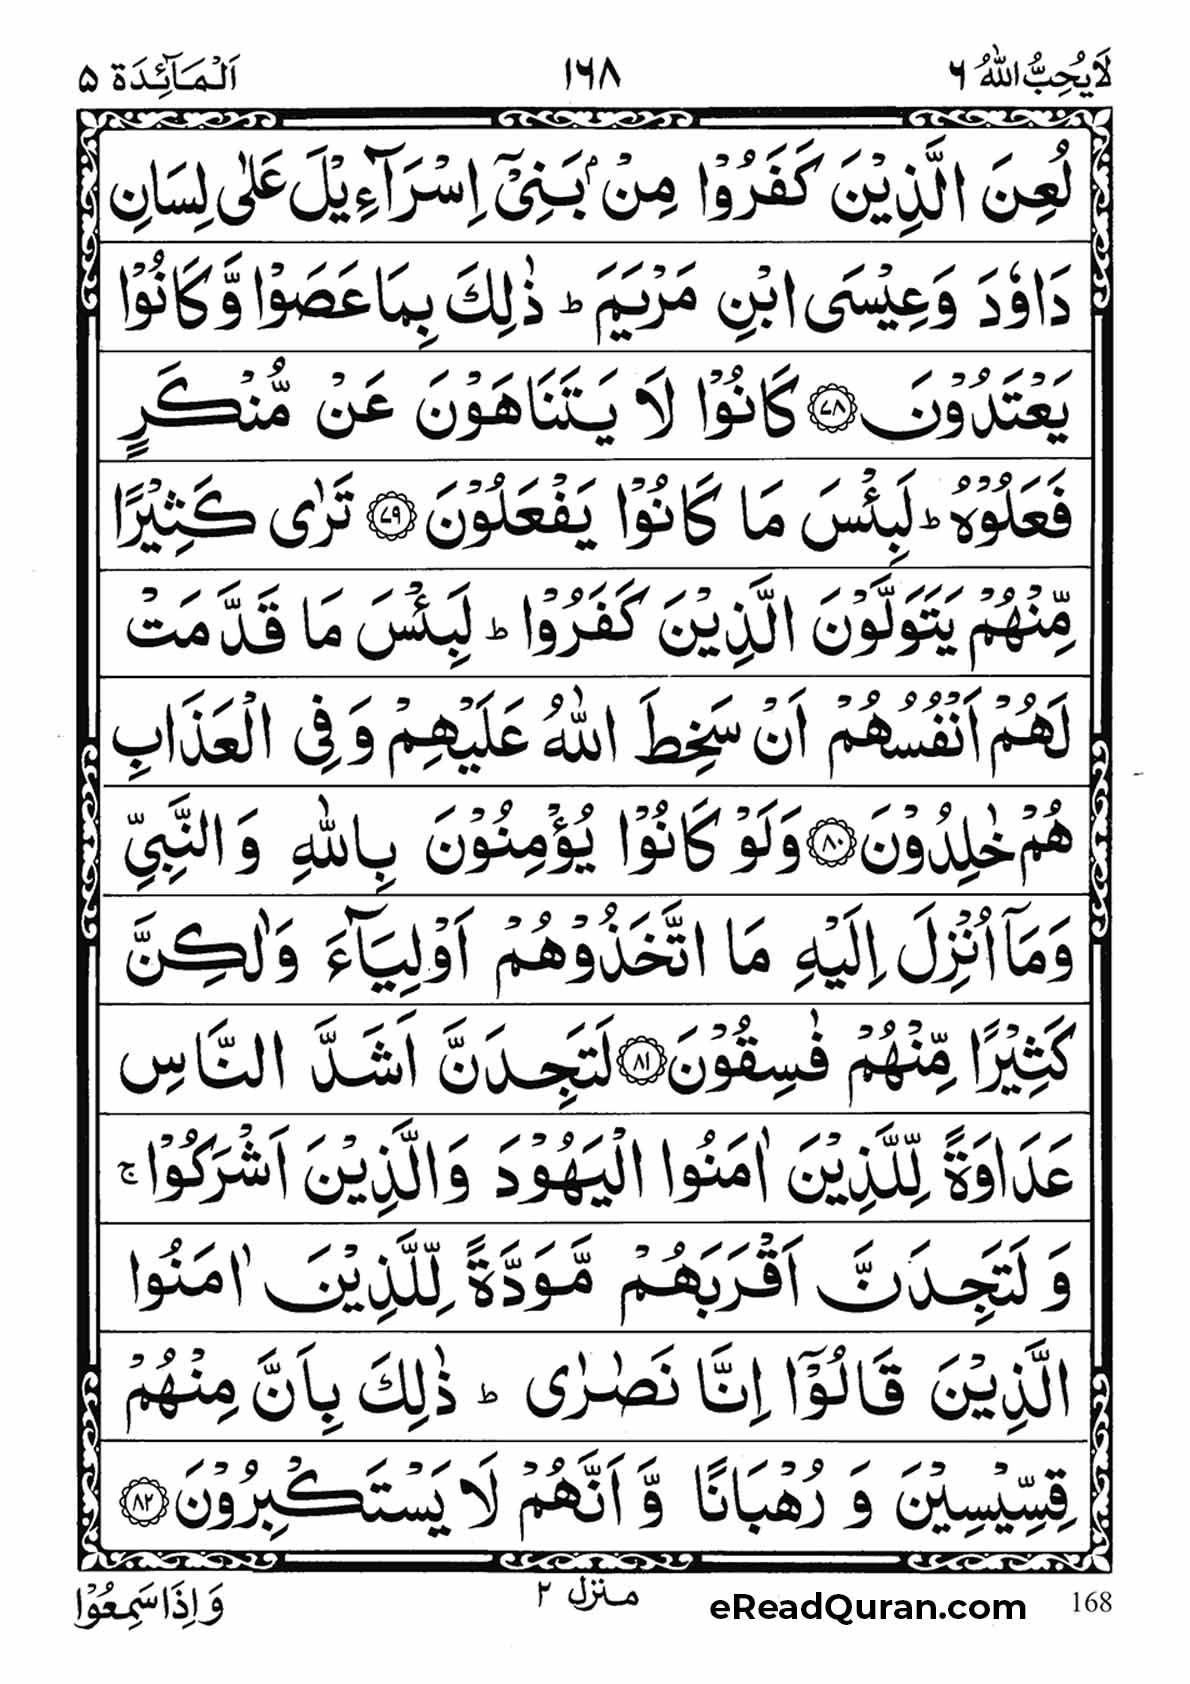 لَا يُحِبُّ اللّٰهُ ٦ ١٦٨ اَلْمَآئِدَة ٥
لُعِنَ الَّذِيْنَ كَفَرُوْا مِنْۢ بَنِىْٓ اِسْرَآءِيْلَ عَلٰى لِسَانِ
دَاوٗدَ وَعِيْسَى ابْنِ مَرْيَمَ ؕ ذٰلِكَ بِمَا عَصَوْا وَّكَانُوْا
يَعْتَدُوْنَ ﴿٧٨﴾ كَانُوْا لَا يَتَنَاهَوْنَ عَنْ مُّنْكَرٍ
فَعَلُوْهُ ؕ لَبِئْسَ مَا كَانُوْا يَفْعَلُوْنَ ﴿٧٩﴾ تَرٰى كَثِيْرًا
مِّنْهُمْ يَتَوَلَّوْنَ الَّذِيْنَ كَفَرُوْا ؕ لَبِئْسَ مَا قَدَّمَتْ
لَهُمْ اَنْفُسُهُمْ اَنْ سَخِطَ اللّٰهُ عَلَيْهِمْ وَفِى الْعَذَابِ
هُمْ خٰلِدُوْنَ ﴿٨٠﴾ وَلَوْ كَانُوْا يُؤْمِنُوْنَ بِاللّٰهِ وَالنَّبِيِّ
وَمَآ اُنْزِلَ اِلَيْهِ مَا اتَّخَذُوْهُمْ اَوْلِيَآءَ وَلٰكِنَّ
كَثِيْرًا مِّنْهُمْ فٰسِقُوْنَ ﴿٨١﴾ لَتَجِدَنَّ اَشَدَّ النَّاسِ
عَدَاوَةً لِّلَّذِيْنَ اٰمَنُوا الْيَهُوْدَ وَالَّذِيْنَ اَشْرَكُوْا ۚ
وَلَتَجِدَنَّ اَقْرَبَهُمْ مَّوَدَّةً لِّلَّذِيْنَ اٰمَنُوا
الَّذِيْنَ قَالُوْٓا اِنَّا نَصٰرٰى ؕ ذٰلِكَ بِاَنَّ مِنْهُمْ
قِسِّيْسِيْنَ وَرُهْبَانًا وَّاَنَّهُمْ لَا يَسْتَكْبِرُوْنَ ﴿٨٢﴾
وَاِذَا سَمِعُوْا منزل ٢ eReadQuran.com 168